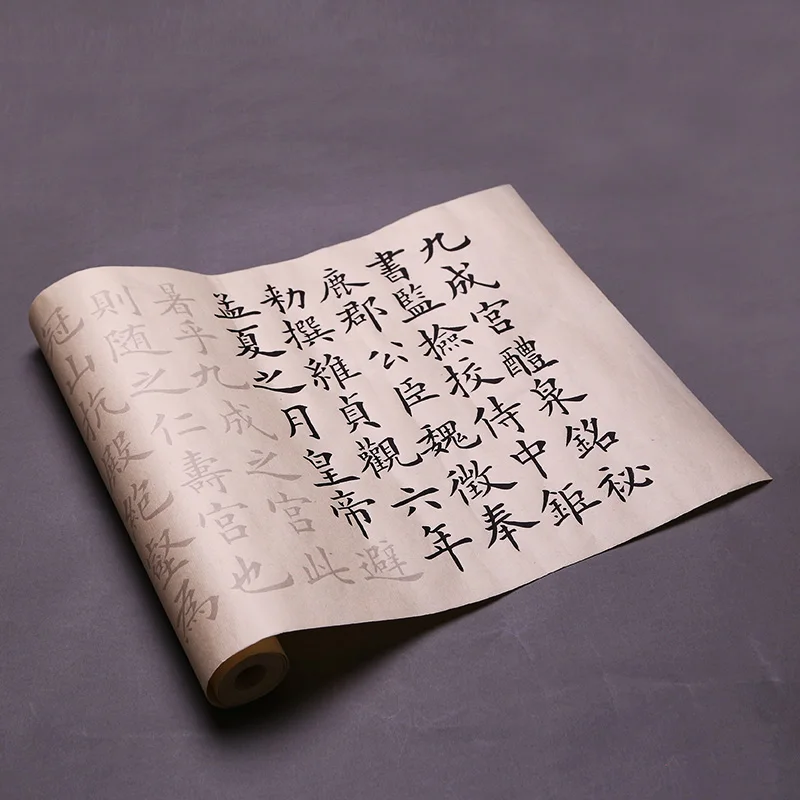 九成宮醴泉銘祕
書監撿挍侍中鉅
鹿郡公臣魏徵奉
勑撰維貞觀六年
孟夏之月皇帝避
暑乎九成之宮此
則随之仁壽宮也
冠山抗殿絶壑為